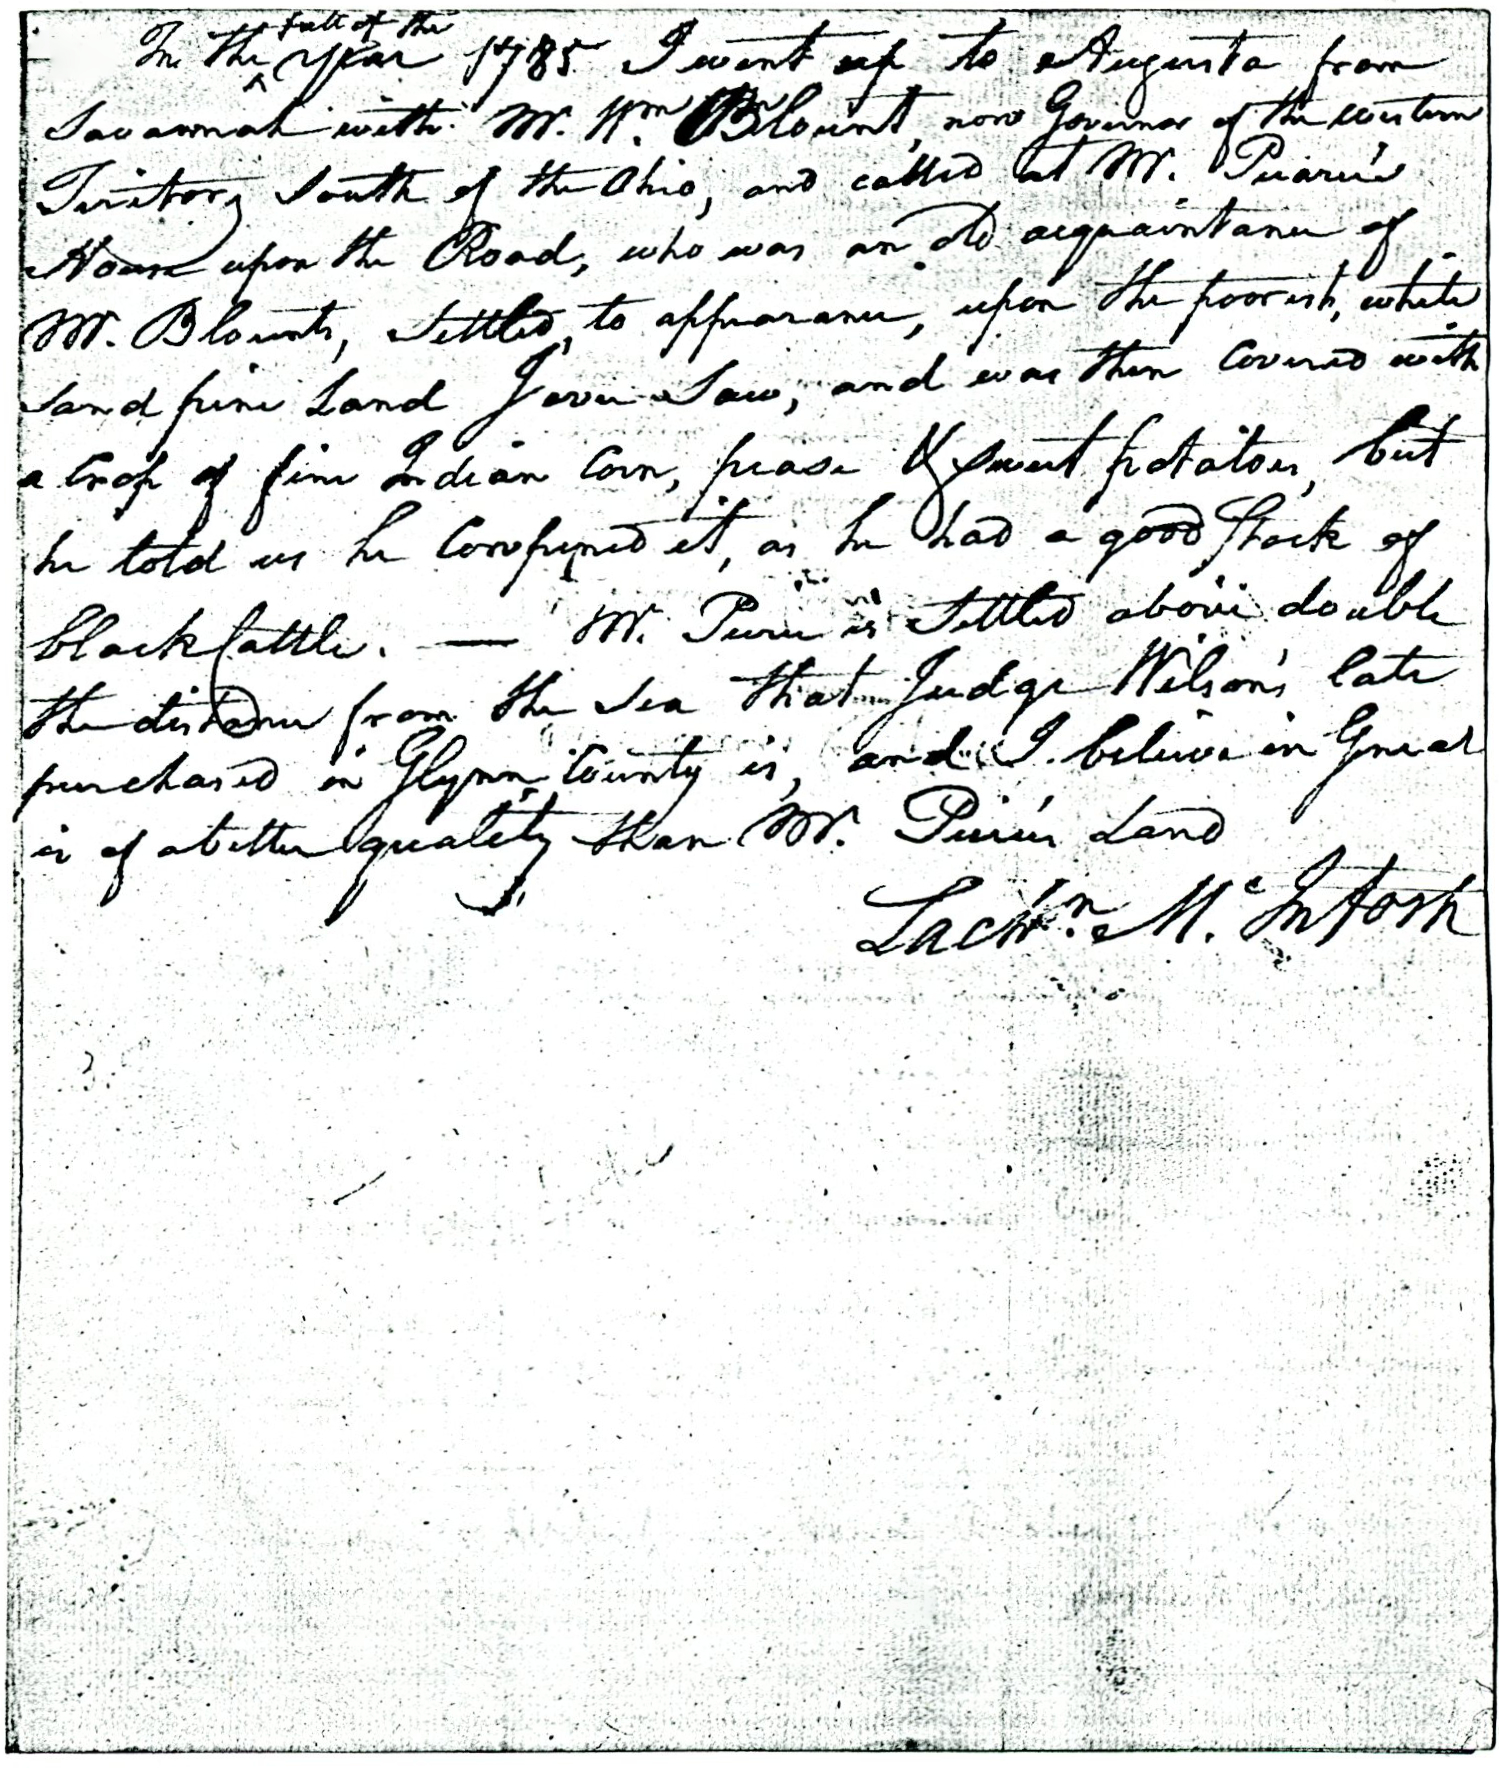 In the ^fall of the year 1785 I went up to Augusta from
Savannah with Mr. Wm. Blount, now Governor of the western
Territory South of the Ohio, and called at Mr. Pearie's
House upon the Road, who was an old acquaintance of
Mr. Blounts, Settled, to appearance, upon the poorest, white
Sand pine Land I ever Saw, and was then Covered with
a Crop of fine Indian Corn, pease & Sweet potatoes, but
he told us he Cowpened it, as he had a good Stock of
black Cattle. — Mr. Perie is Settled above double
the distance from the Sea that Judge Wilson's late
purchased in Glynn County is, and I believe in General
is of a better quality than Mr. Perie's Land
Lachn. McIntosh